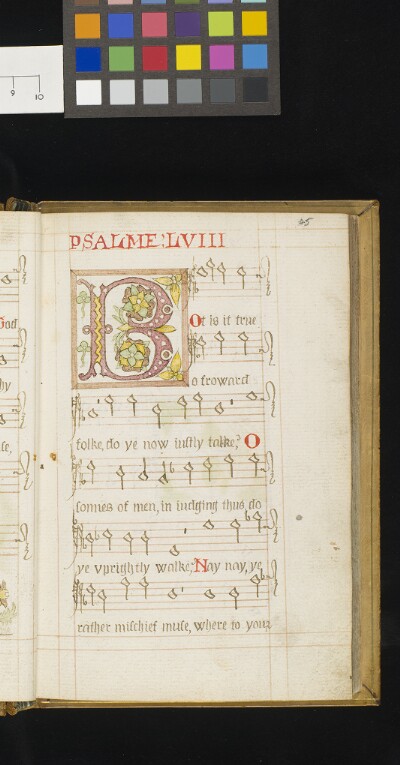 9 10
45
PSALME: LVIII
God
But is it true
o froward
folke, do ye now iustly talke? O
sonnes of men, in iudging thus, do
ye vprightly walke? Nay nay, ye
rather mischief muse, where to your